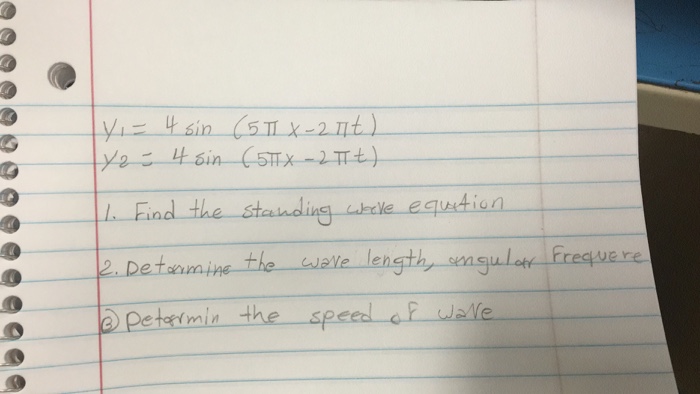 y1 = 4 sin (5π x - 2πt)
y2 = 4 sin (5πx - 2πt)
1. Find the standing wave equation
2. Determine the wave length, angular Frequere
③ Determin the speed of wave